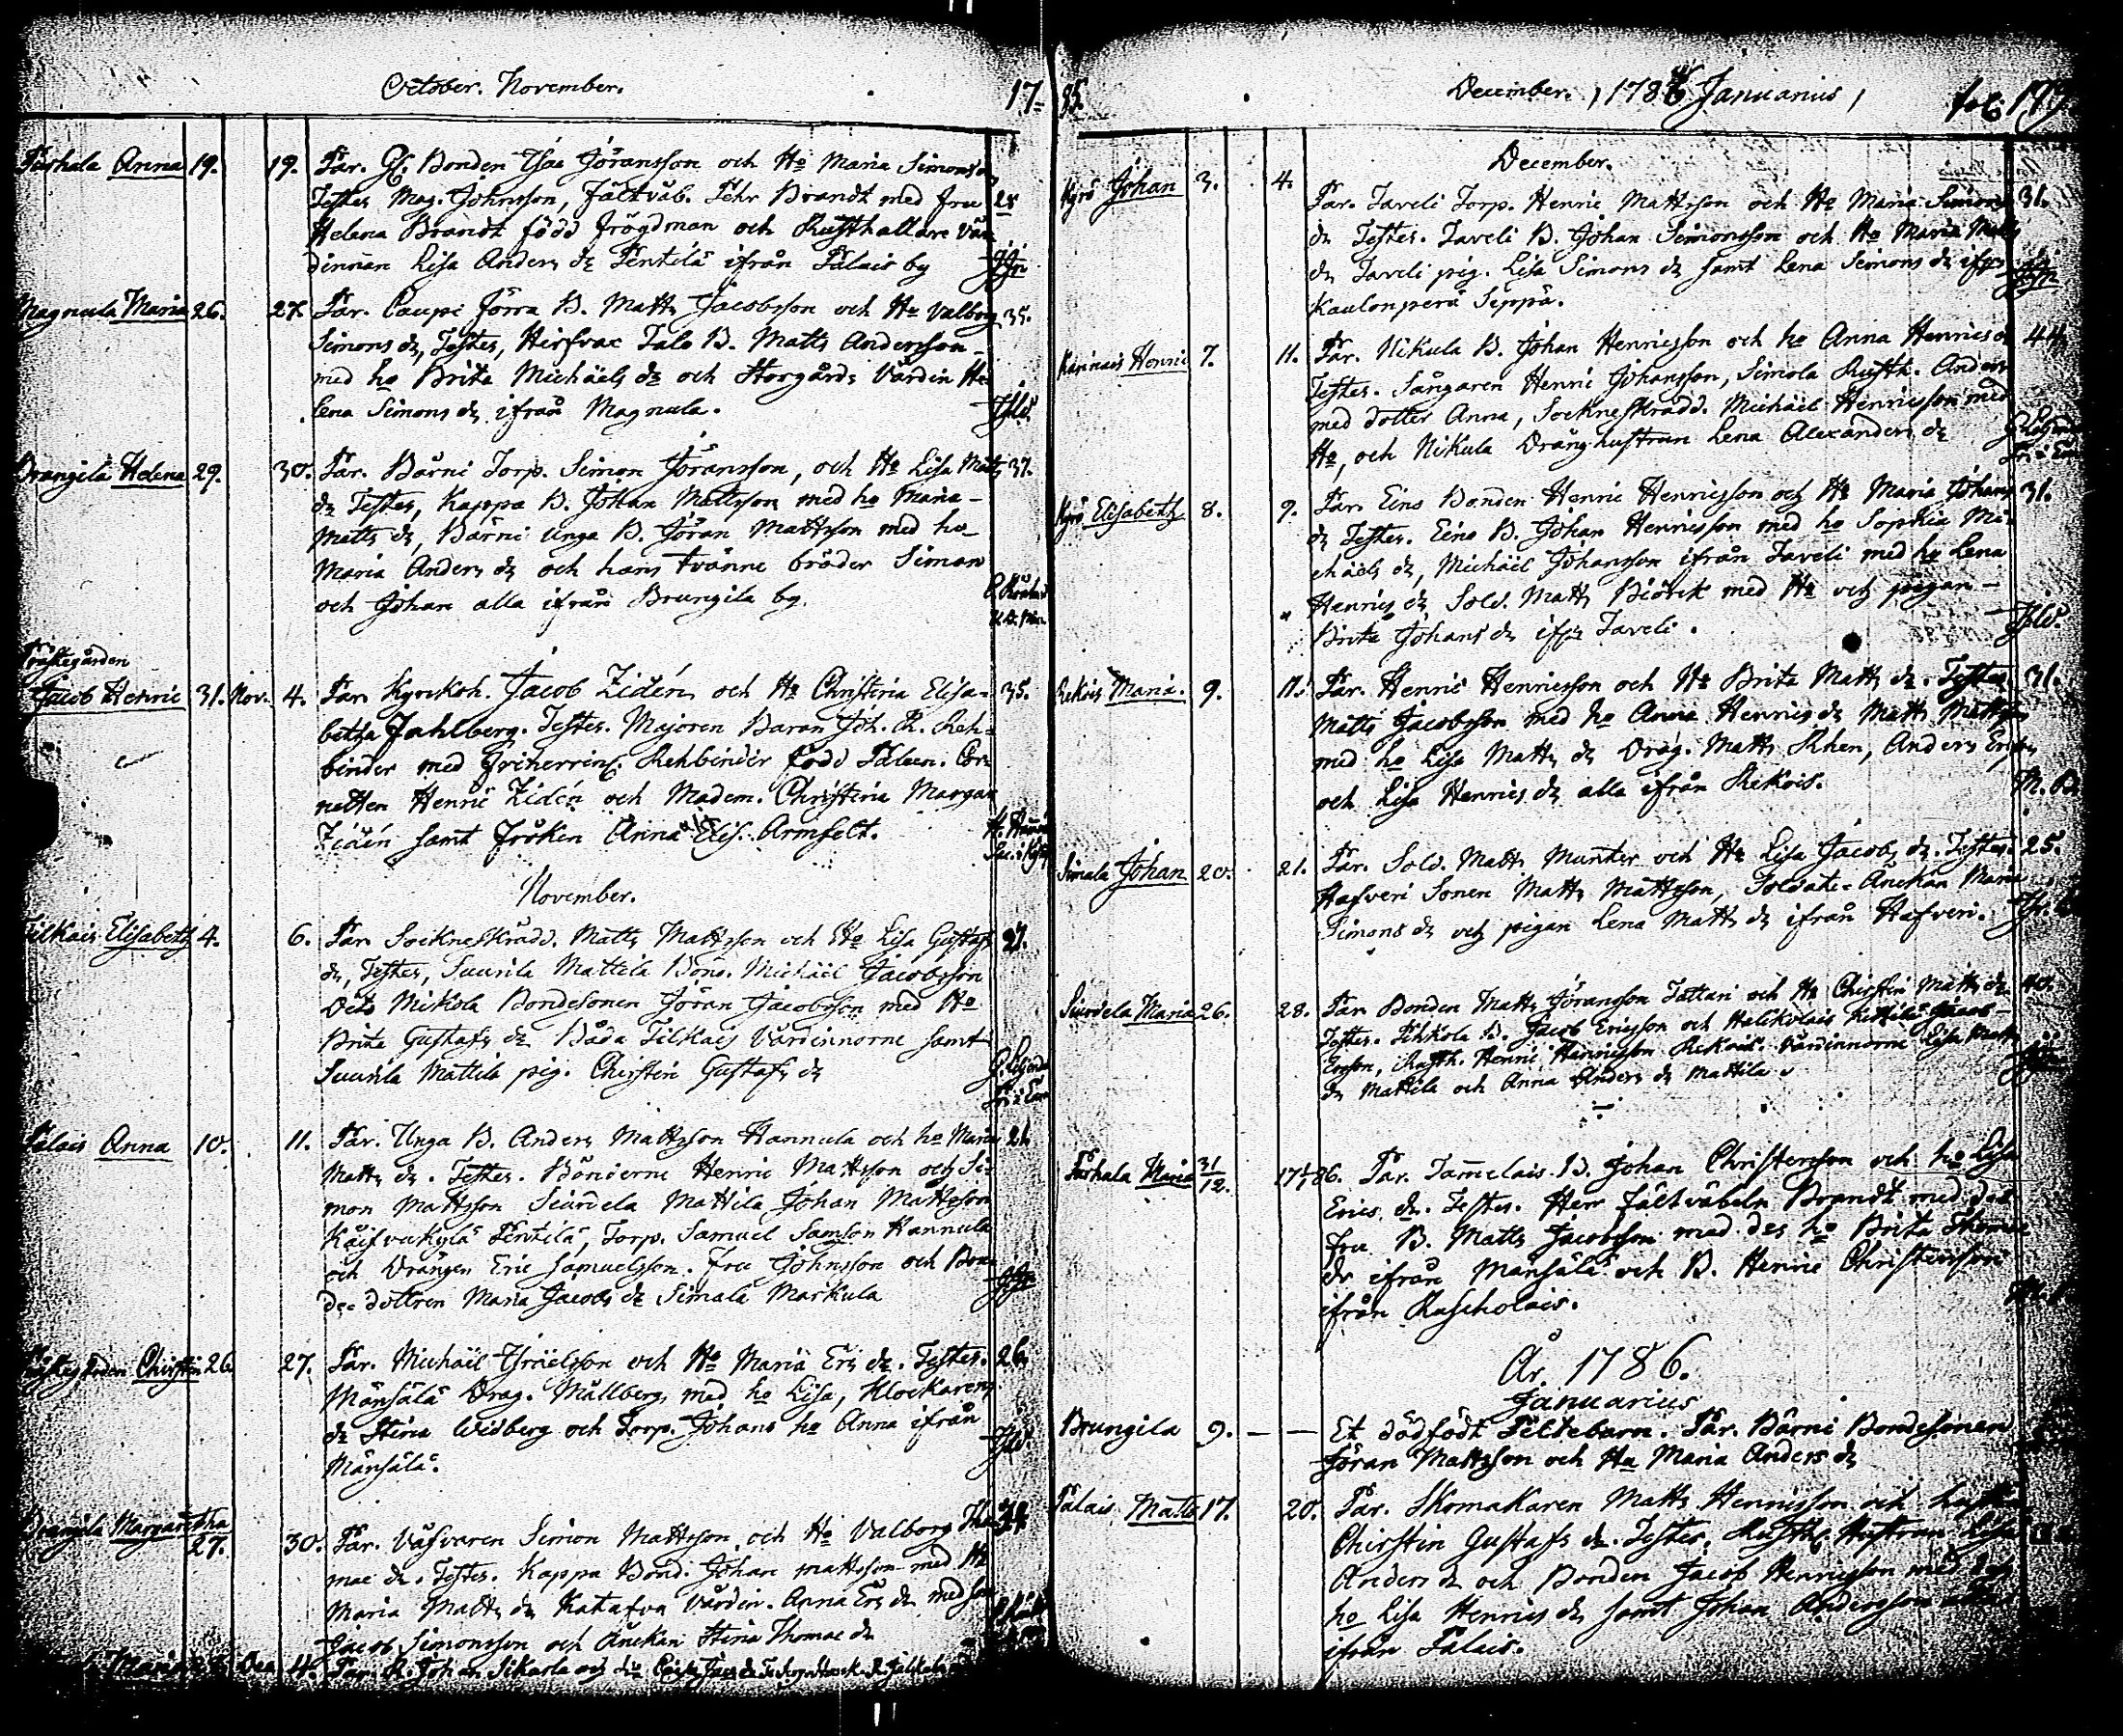 October. November. 17
Pärhala Anna 19. 19. Par. Gl. Bonden Isac Jöransson och Ho Maria Simons dr
Testes Mag. Johnsson, fältväb. Pehr Brandt med fru 28
Helena Brandt född Frögdman och Rusthallare Vär
dinnan Lisa Anders dr Pentilä ifrån Pälais by
Magnula Maria 26. 27. Par. Caupi Jörra B. Matts Jacobsson och Hu Valborg 35.
Simons dr, Testes, Hirfvac Talo B. Matts Andersson
med ho Brita Michäels dr och Storgårds Värdin He
lena Simons dr ifrån Magnula.
Brangila Helena 29. 30. Par. Bärni Torp. Simon Jöransson, och Ho Lisa Matts 37.
dr Testes, Kappa B. Johan Mattsson med ho Maria
Matts dr, Bärni Unga B. Jöran Mattsson med hu
Maria Anders dr och hans tvänne bröder Simon
och Johan alla ifrån Brungila by.
Prästegården
Jacob Henric 31. Nov. 4. Par. Kyrckoh. Jacob Zidén och Ho Christina Elisa- 35.
betha Fahlberg. Testes. Majoren Baron Joh. R. Reh-
binder med Friherrin. Rehbinder född Påleen. Cor-
netten Henric Zidén och Madem. Christina Margar
Zidén samt Fröken Anna Elis. Armfelt.
November.
Tilkais Elisabeth 4. 6. Par Sockneskrädd. Matts Mattsson och Ho Lisa Gustafs 27.
dr, Testes, Suurila Mattila Bond. Michäel Jacobsson
Dito Mickola Bondesonen Jöran Jacobsson med Ho
Brita Gustafs dr Båda Tilkais Värdinnorne samt
Suurila Mattila pig. Chirstin Gustafs dr
Pälais Anna 10. 11. Par. Unga B. Anders Mattsson Hannula och ho Maria 21.
Matts dr. Testes. Bönderne Henric Mattsson och Si-
mon Mattsson Siurdela Mattila Johan Mattsson
Käifvukylä Pentilä, Torp. Samuel Samson Hannula
och Drängen Eric Samuelsson. Fru Johnsson och Bon-
de dottren Maria Jacobs dr Simala Markula
Chirstin 26 27. Par. Michäel Israelsson och Ho Maria Ers dr. Testes. 26.
Mänsälä Drag. Mällberg med ho Lisa, Klockarens
dr Stina Widberg och Torp. Johans ho Anna ifrån
Mänsälä.
Brangila Margaretha
27. 30. Par. Väfvaren Simon Mattsson och Ho Valborg Tho
mae dr. Testes. Kappa Bond. Johan Mattsson med Ho
Maria Matts dr Katafva Värdin. Anna Ers dr med son
Jacob Simonsson och Änckan Stina Thomae dr
Maria Dec 4. Par. R. Johan Sikarla och
85. December. , 1786 Januarius , fol 177
December.
Kyrö Johan 3. 4. Par. Taveli Torp. Henric Mattsson och Ho Maria Simons 31.
dr Testes. Taveli B. Johan Simonsson och Ho Maria Matts
dr Taveli pig. Lisa Simons dr samt Lena Simons dr ifrån
Kaulonperä Seppä.
Karinais Henric 7. 11. Par. Nikula B. Johan Henricsson och ho Anna Henrics dr 44.
Testes. Sångaren Henric Johansson, Simola Rusth. Anders
med dotter Anna, Sockneskrädd. Michäel Henricsson med
Ho, och Nikula Dränghustrun Lena Alexanders dr
Kyrö Elisabeth 8. 9. Par. Eino Bonden Henric Henricsson och Ho Maria Johans 31.
dr Testes. Eino B. Johan Henricsson med ho Sophia Mi-
chäels dr, Michäel Johansson ifrån Taveli med ho Lena
Henrics dr Sold. Matts Biörck med Ho och pigan
Brita Johans dr ifrn Taveli.
Rekois Maria. 9. 11. Par. Henric Henricsson och Ho Brita Matts dr. Testes 31.
Matts Jacobsson med ho Anna Henrics dr Matts Mattsson
med ho Lisa Matts dr Drag. Matts Rhen, Anders Ersson
och Lisa Henrics dr alla ifrån Rekois.
Simala Johan 20. 21. Par. Sold. Matts Munter och Ho Lisa Jacobs dr. Testes. 25.
Hafveri Sonen Matts Mattsson, Soldate-Änckan Maria
Simons dr och pigan Lena Matts dr ifrån Hafveri.
Siurdela Maria 26. 28. Par Bonden Matts Jöransson Tattari och Ho Chirstin Matts dr 40.
Testes. Pikkola B. Jacob Ericsson och Halikolais
Ersson, Rusth. Henric Henricsson Rekois. Värdinnorne Lisa Matts
dr Mattila och Anna Anders dr Mattila
Pärhala Maria 31/12. 17 1/1 86. Par. Tamelais B. Johan Christersson och ho Lisa
Erics dr. Testes. Herr fältväbeln Brandt med des
fru B. Matts Jacobsson med des ho Brita Thomae
dr ifrån Mänsälä och B. Henric Christersson
ifrån Ruscholais.
År. 1786.
Januarius
Brungila 9. — — Et dödfödt Piltebarn. Par. Bärni Bondesonen
Jöran Mattsson och Hu Maria Anders dr
Pälais Matts 17. 20. Par. Skomakaren Matts Henricsson och hustr
Chirstin Gustafs dr. Testes. Rusth. Hustrun Lisa
Anders dr och Bonden Jacob Henricsson med des
ho Lisa Henrics dr samt Johan Andersson alla
ifrån Pälais.